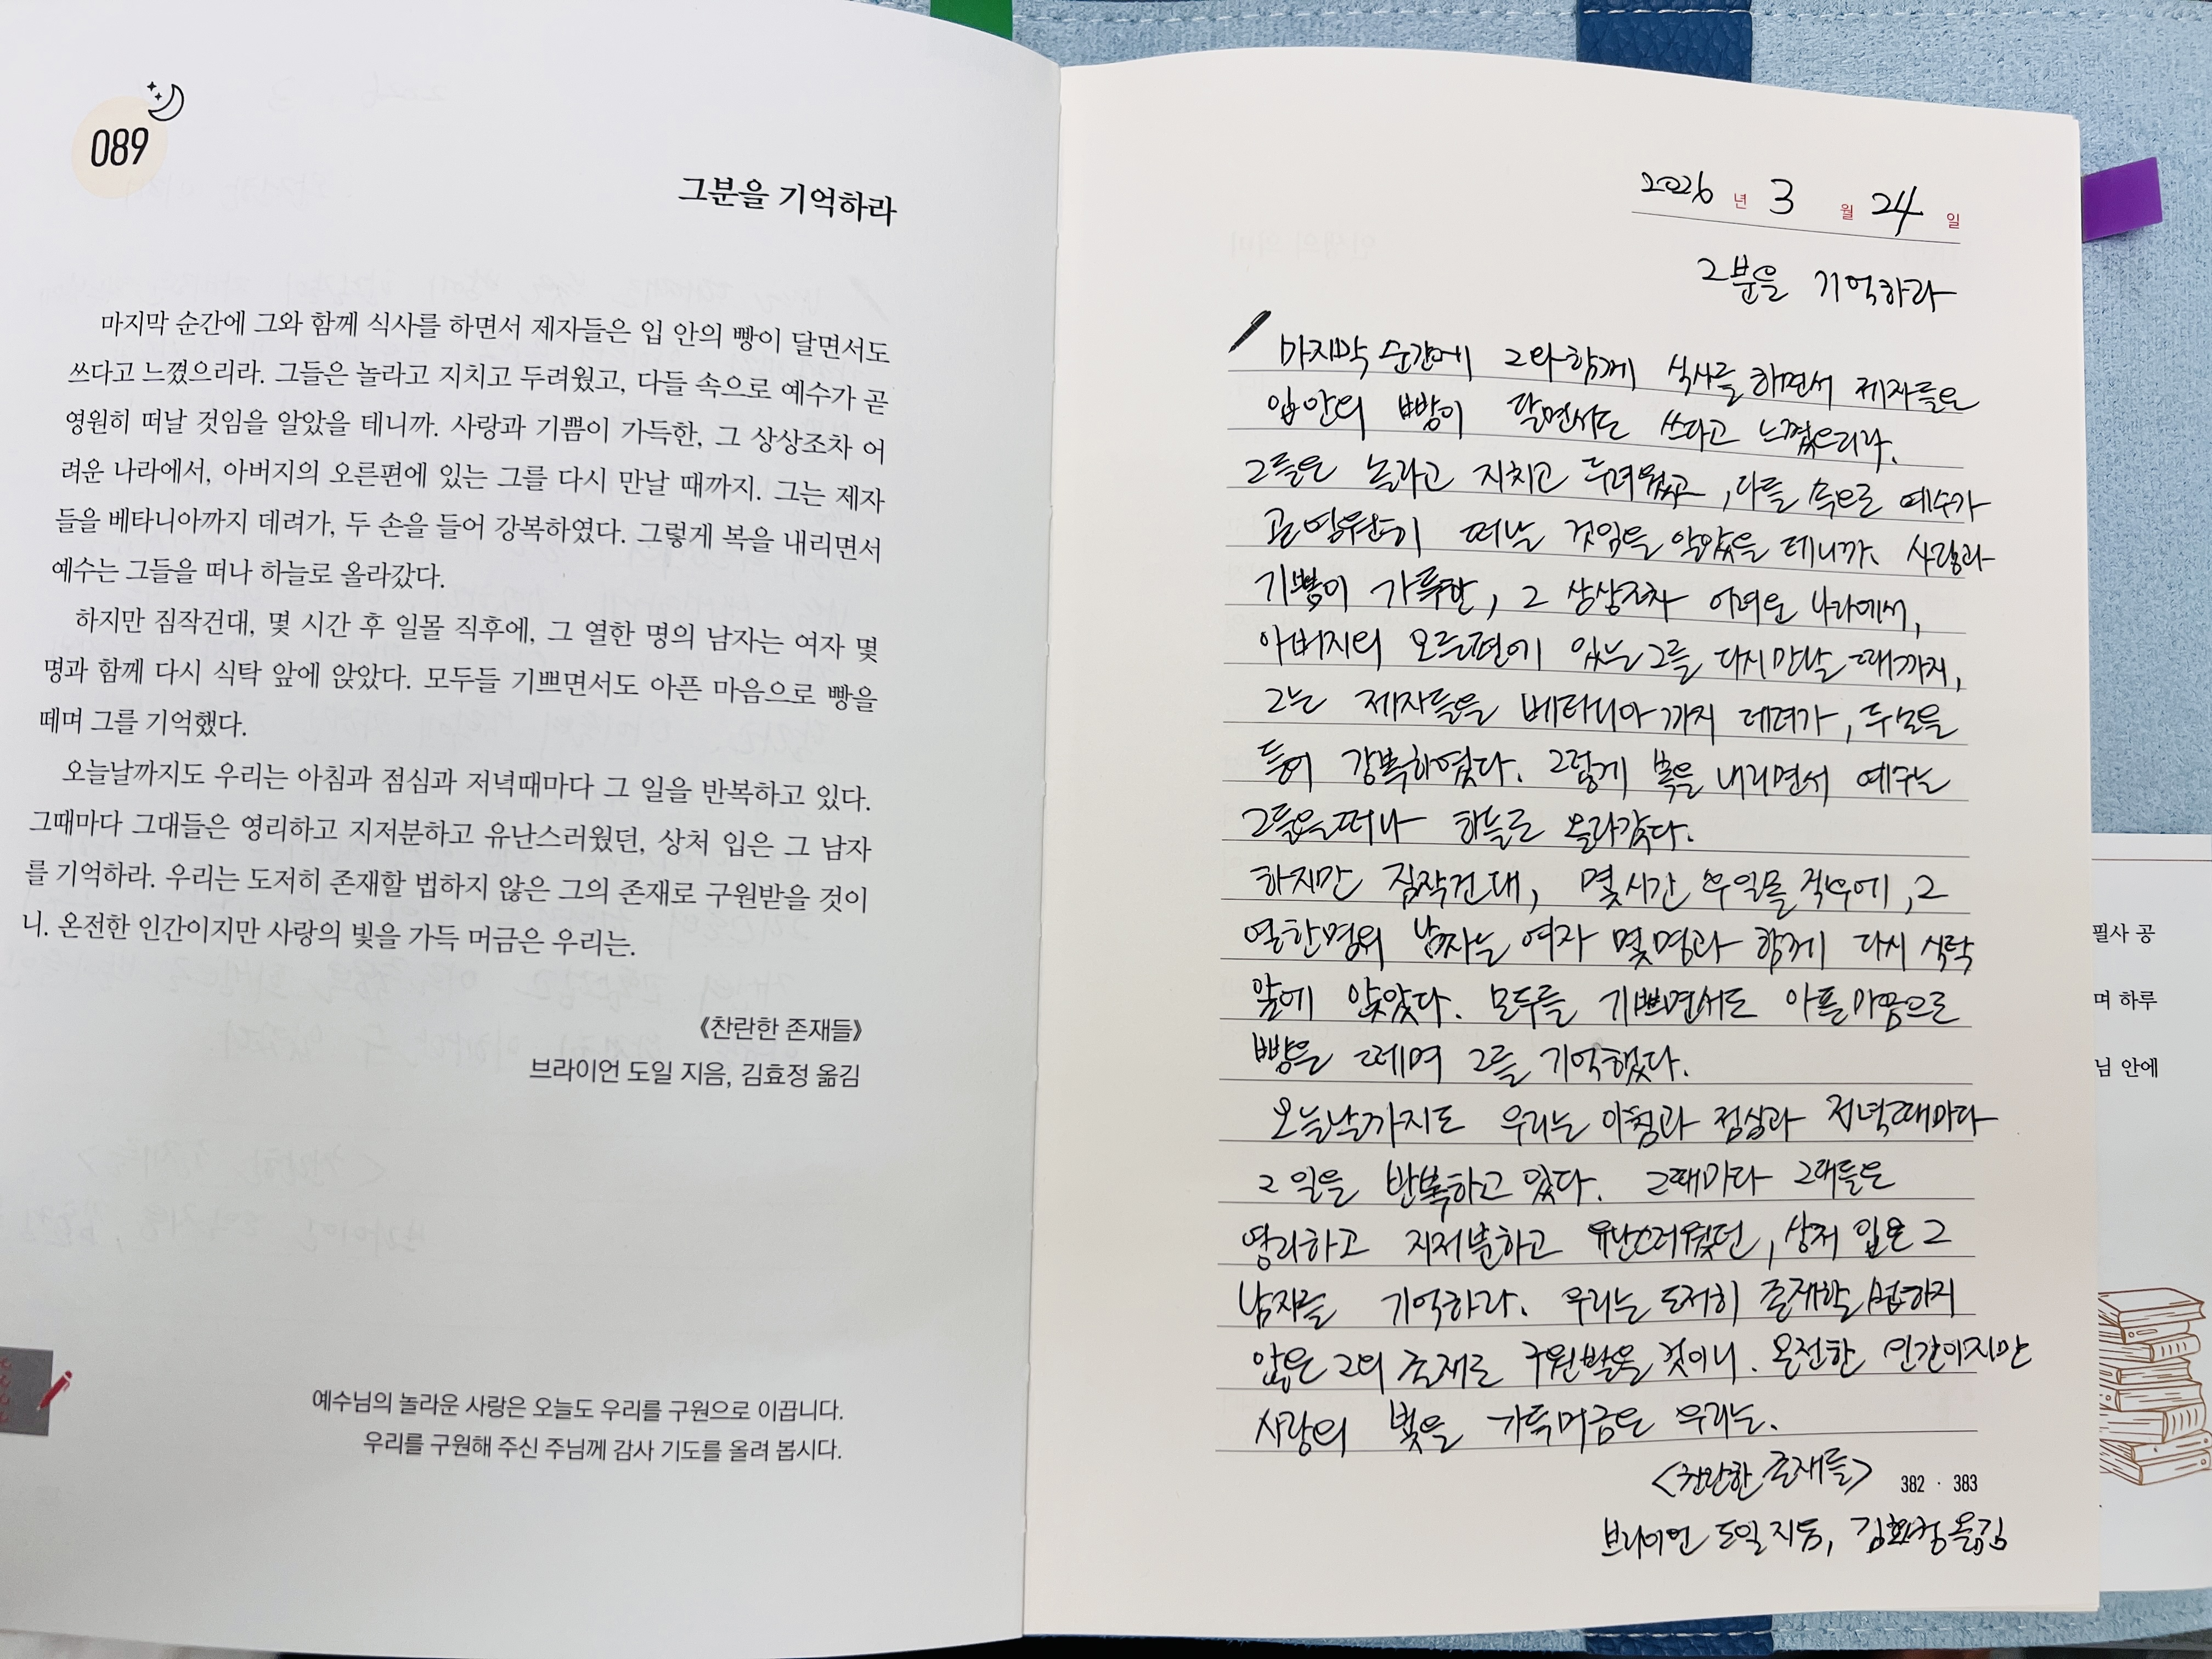 089
그분을 기억하라
마지막 순간에 그와 함께 식사를 하면서 제자들은 입 안의 빵이 달면서도
쓰다고 느꼈으리라. 그들은 놀라고 지치고 두려웠고, 다들 속으로 예수가 곧
영원히 떠날 것임을 알았을 테니까. 사랑과 기쁨이 가득한, 그 상상조차 어
려운 나라에서, 아버지의 오른편에 있는 그를 다시 만날 때까지. 그는 제자
들을 베타니아까지 데려가, 두 손을 들어 강복하였다. 그렇게 복을 내리면서
예수는 그들을 떠나 하늘로 올라갔다.
하지만 짐작건대, 몇 시간 후 일몰 직후에, 그 열한 명의 남자는 여자 몇
명과 함께 다시 식탁 앞에 앉았다. 모두들 기쁘면서도 아픈 마음으로 빵을
떼며 그를 기억했다.
오늘날까지도 우리는 아침과 점심과 저녁때마다 그 일을 반복하고 있다.
그때마다 그대들은 영리하고 지저분하고 유난스러웠던, 상처 입은 그 남자
를 기억하라. 우리는 도저히 존재할 법하지 않은 그의 존재로 구원받을 것이
니. 온전한 인간이지만 사랑의 빛을 가득 머금은 우리는.
《찬란한 존재들》
브라이언 도일 지음, 김효정 옮김
예수님의 놀라운 사랑은 오늘도 우리를 구원으로 이끕니다.
우리를 구원해 주신 주님께 감사 기도를 올려 봅시다.
2026 년 3 월 24 일
그분을 기억하라
마지막 순간에 그와 함께 식사를 하면서 제자들은
입 안의 빵이 달면서도 쓰다고 느꼈으리라.
그들은 놀라고 지치고 두려웠고, 다들 속으로 예수가
곧 영원히 떠날 것임을 알았을 테니까. 사랑과
기쁨이 가득한, 그 상상조차 어려운 나라에서,
아버지의 오른편에 있는 그를 다시 만날 때까지,
그는 제자들을 베타니아까지 데려가, 두 손을
들어 강복하였다. 그렇게 복을 내리면서 예수는
그들을 떠나 하늘로 올라갔다.
하지만 짐작건대, 몇 시간 후 일몰 직후에, 그
열한 명의 남자는 여자 몇 명과 함께 다시 식탁
앞에 앉았다. 모두를 기쁘면서도 아픈 마음으로
빵을 떼며 그를 기억했다.
오늘날까지도 우리는 아침과 점심과 저녁때마다
그 일을 반복하고 있다. 그때마다 그대들은
영리하고 지저분하고 유난스러웠던, 상처 입은 그
남자를 기억하라. 우리는 도저히 존재할 법하지
않은 그의 존재로 구원받을 것이니. 온전한 인간이지만
사랑의 빛을 가득 머금은 우리는.
<찬란한 존재들>
382 · 383
브라이언 도일 지음, 김효정 옮김
필사 공
며 하루
님 안에